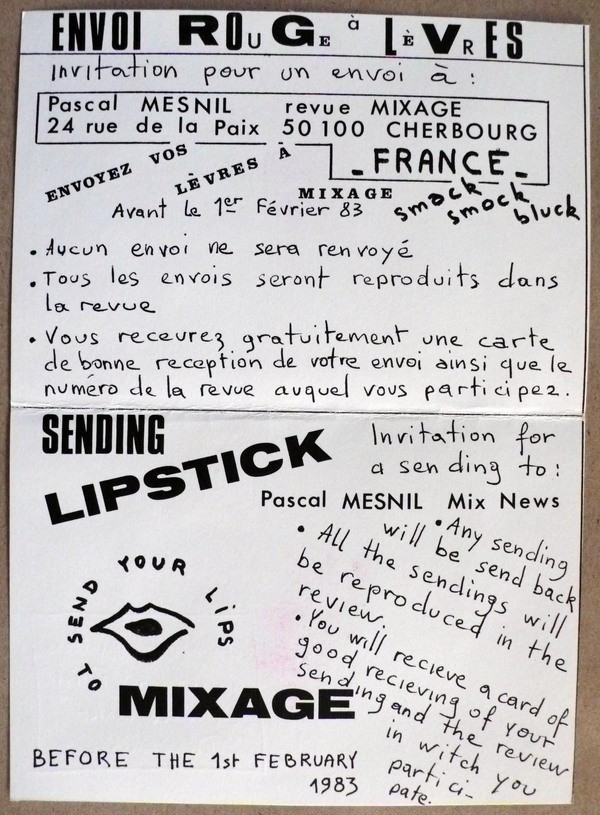 ENVOI ROUGE à LÈVRES
Invitation pour un envoi à :
Pascal MESNIL revue MIXAGE
24 rue de la Paix 50100 CHERBOURG
- FRANCE -
ENVOYEZ VOS
LÈVRES À
MIXAGE
smack
smock
bluck
Avant le 1er Février 83
• Aucun envoi ne sera renvoyé
• Tous les envois seront reproduits dans
la revue
• Vous recevrez gratuitement une carte
de bonne reception de votre envoi ainsi que le
numéro de la revue auquel vous participez.
SENDING
LIPSTICK
Invitation for
a sending to :
Pascal MESNIL Mix News
• Any sending
will be send back
• All the sendings will
be reproduced in the
review.
• You will recieve a card of
good recieving of your
sending and the review
in witch you
partici-
pate.
SEND YOUR LiPS
TO
MIXAGE
BEFORE THE 1st FEBRUARY
1983